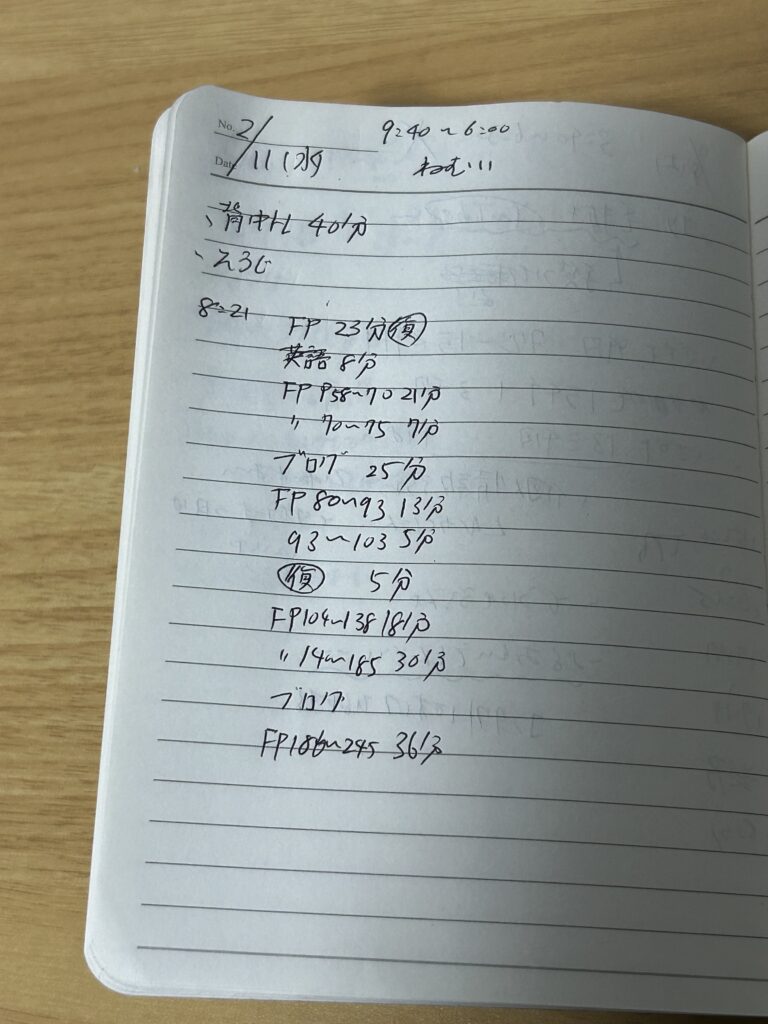 No. 2/ 9:40 ~ 6:00
Date /11 (水) ねむい
、背中トレ 40分
、えるじ
8:21 FP 23分 復
英語 8分
FP P58~70 21分
〃 70~75 7分
ブログ 25分
FP 80~93 13分
93~103 5分
復 5分
FP104~138 18分
〃 14~185 30分
ブログ
FP186~245 36分